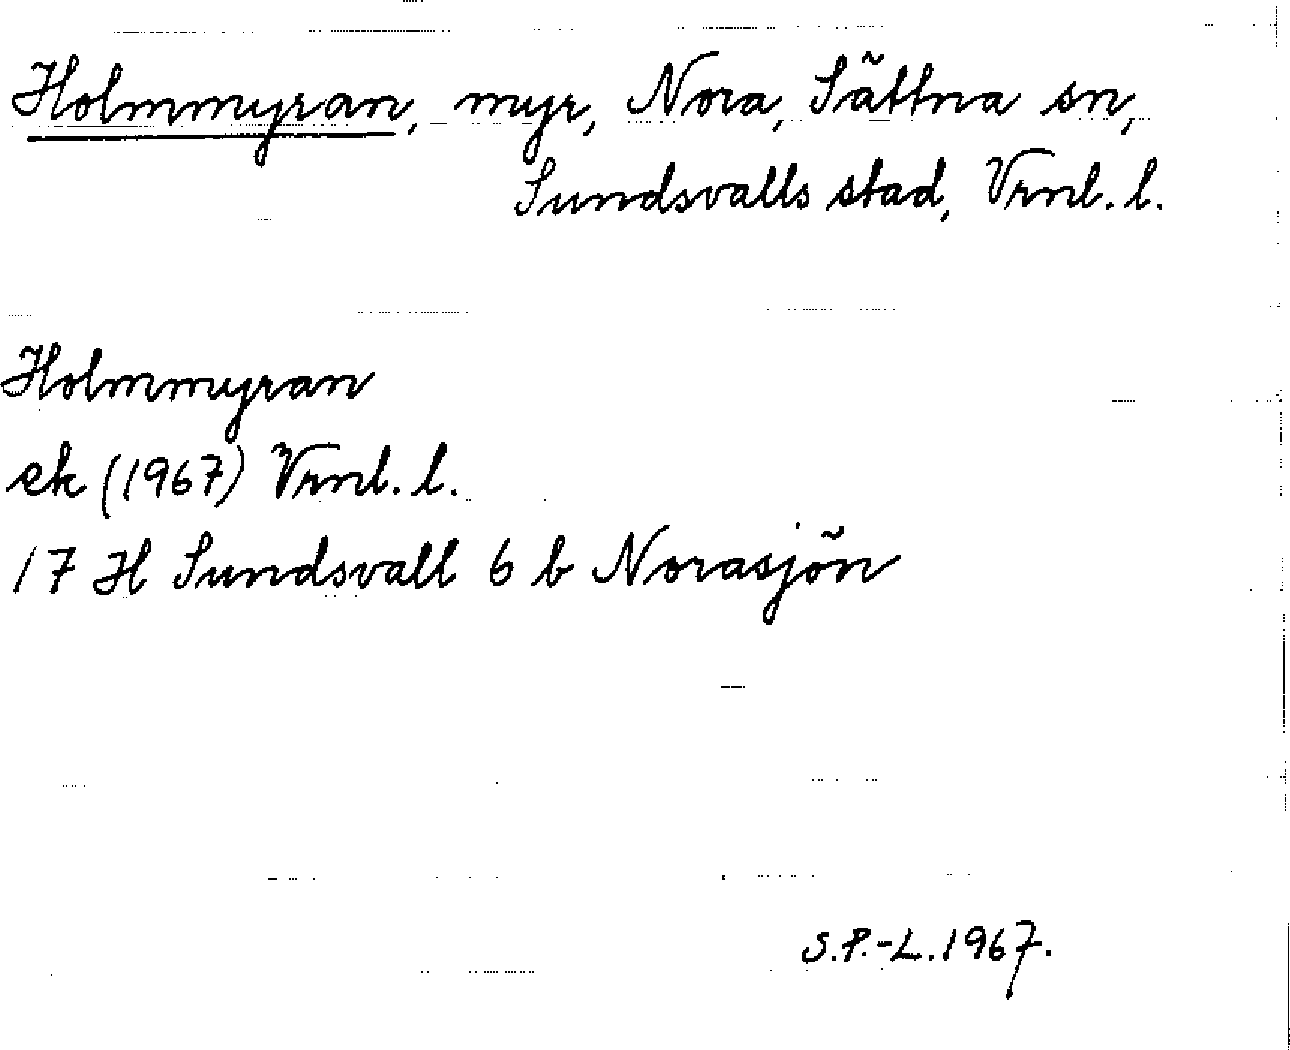 Holmmyran, myr, Nora, Sättna sn,
Sundsvalls stad, Vrnl. l.
Holmmyran
ek (1967) Vrnl. l.
17 H Sundsvall 6 b Norasjön
S.P.-L. 1967.